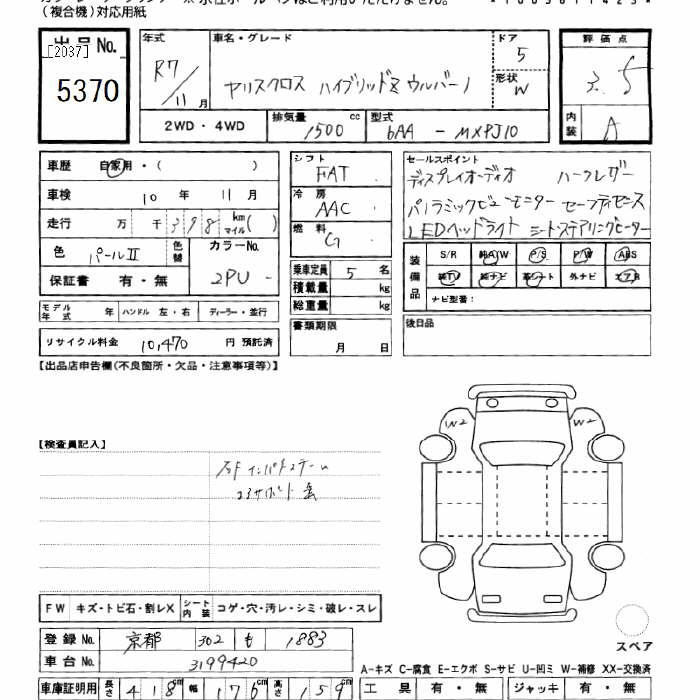 (複合機)対応用紙
出品No.
[2037]
5370
年式
R7/11月
車名・グレード
ヤリスクロス ハイブリッドZ ウルバーノ
ドア
5
形状
W
評価点
3.5
内装
A
2WD・4WD
排気量
1500 cc
型式
6AA - MXPJ10
車歴 自家用・( )
車検 10年 11月
走行 万 千 398 km マイル( )
色 パールⅡ 色替
カラーNo.
2PU -
保証書 有・無
モデル年式 年 ハンドル 左・右 ディーラー・並行
リサイクル料金 10,470 円 預託済
シフト
FAT
冷房
AAC
燃料
G
乗車定員 5 名
積載量 kg
総重量 kg
書類期限
月 日
セールスポイント
ディスプレイオーディオ ハーフレザー
パノラミックビューモニター セーフティセンス
LEDヘッドライト シートステアリングヒーター
装備品
S/R 純A/W P/S P/W ABS
純TV 純ナビ 革シート 外ナビ エアB
ナビ型番:
後日品
【出品店申告欄(不良箇所・欠品・注意事項等)】
【検査員記入】
W2 W2
FW キズ・トビ石・割レX シート内装 コゲ・穴・汚レ・シミ・破レ・スレ
登録No. 京都 302 も 1883
車台No. 3199420
車庫証明用 長さ 418cm 幅 176cm 高さ 159cm
スペア
A-キズ C-腐食 E-エクボ S-サビ U-凹ミ W-補修 XX-交換済
工具 有・無 ジャッキ 有・無